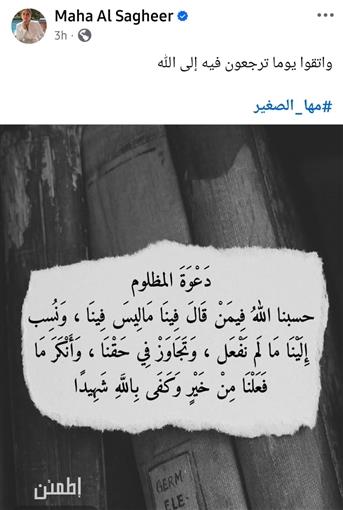 Maha Al Sagheer
3h ·
واتقوا يوما ترجعون فيه إلى الله
#مها_الصغير
دَعْوَةَ المظلوم
حسبنا اللهُ فِيمَنْ قَالَ فِينَا مَالِيسَ فِينَا ، وَنُسِب
إِلَيْنَا مَا لَم نَفْعَل ، وَتَجَاوَزْ فِي حَقْنَا ، وَأَنْكَرَ مَا
فَعَلْنَا مِنْ خَيْرٍ وَكَفَى بِاللَّهِ شَهِيدًا
GERM
ELE-
إطمئن